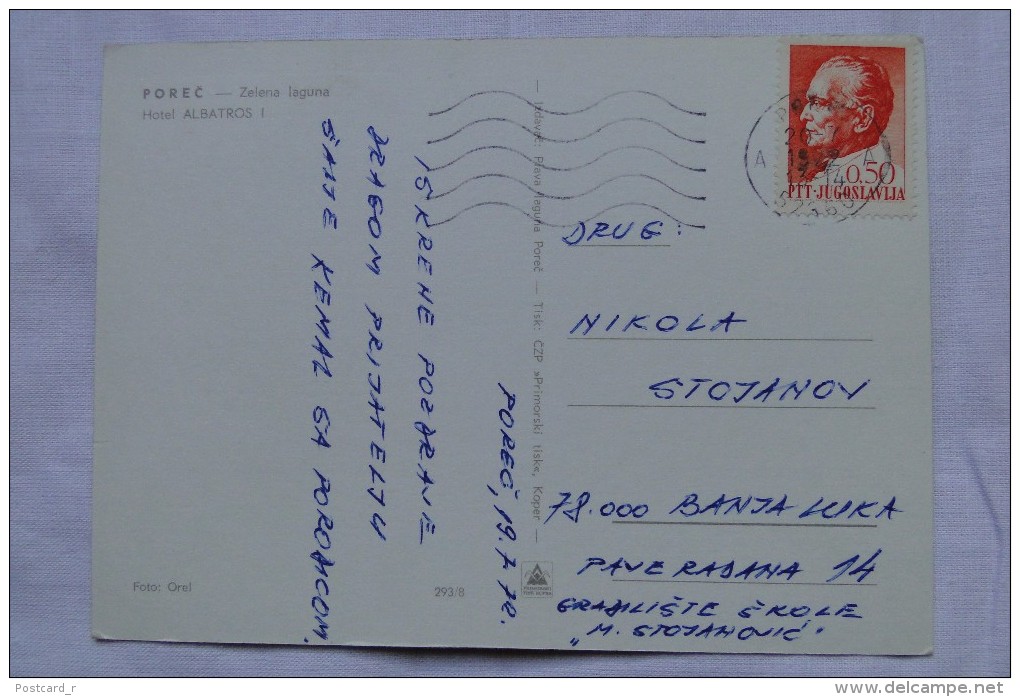 POREČ — Zelena laguna
Hotel ALBATROS I
POREČ, 19.7.72.
ISKRENE POZDRAVE
DRAGOM PRIJATELJU
ŠALJE KEMAL SA PORODICOM.
Foto: Orel
293/8
— Izdavač: Plava laguna Poreč — Tisk: ČZP »Primorski tisk«, Koper —
0.50
PTT·JUGOSLAVIJA
A A
DRUG:
NIKOLA
STOJANOV
78.000 BANJA LUKA
PAVE RADANA 14
GRADILIŠTE ŠKOLE
"M. STOJANOVIĆ"
Postcard_r
www.delcampe.net